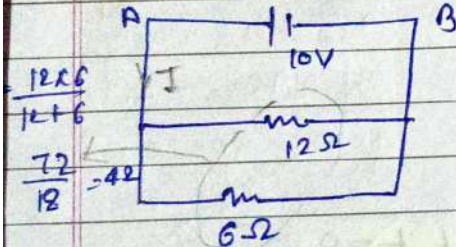 A B
10V
I
= 12x6
12+6
12Ω
72
18 = 4Ω
6Ω